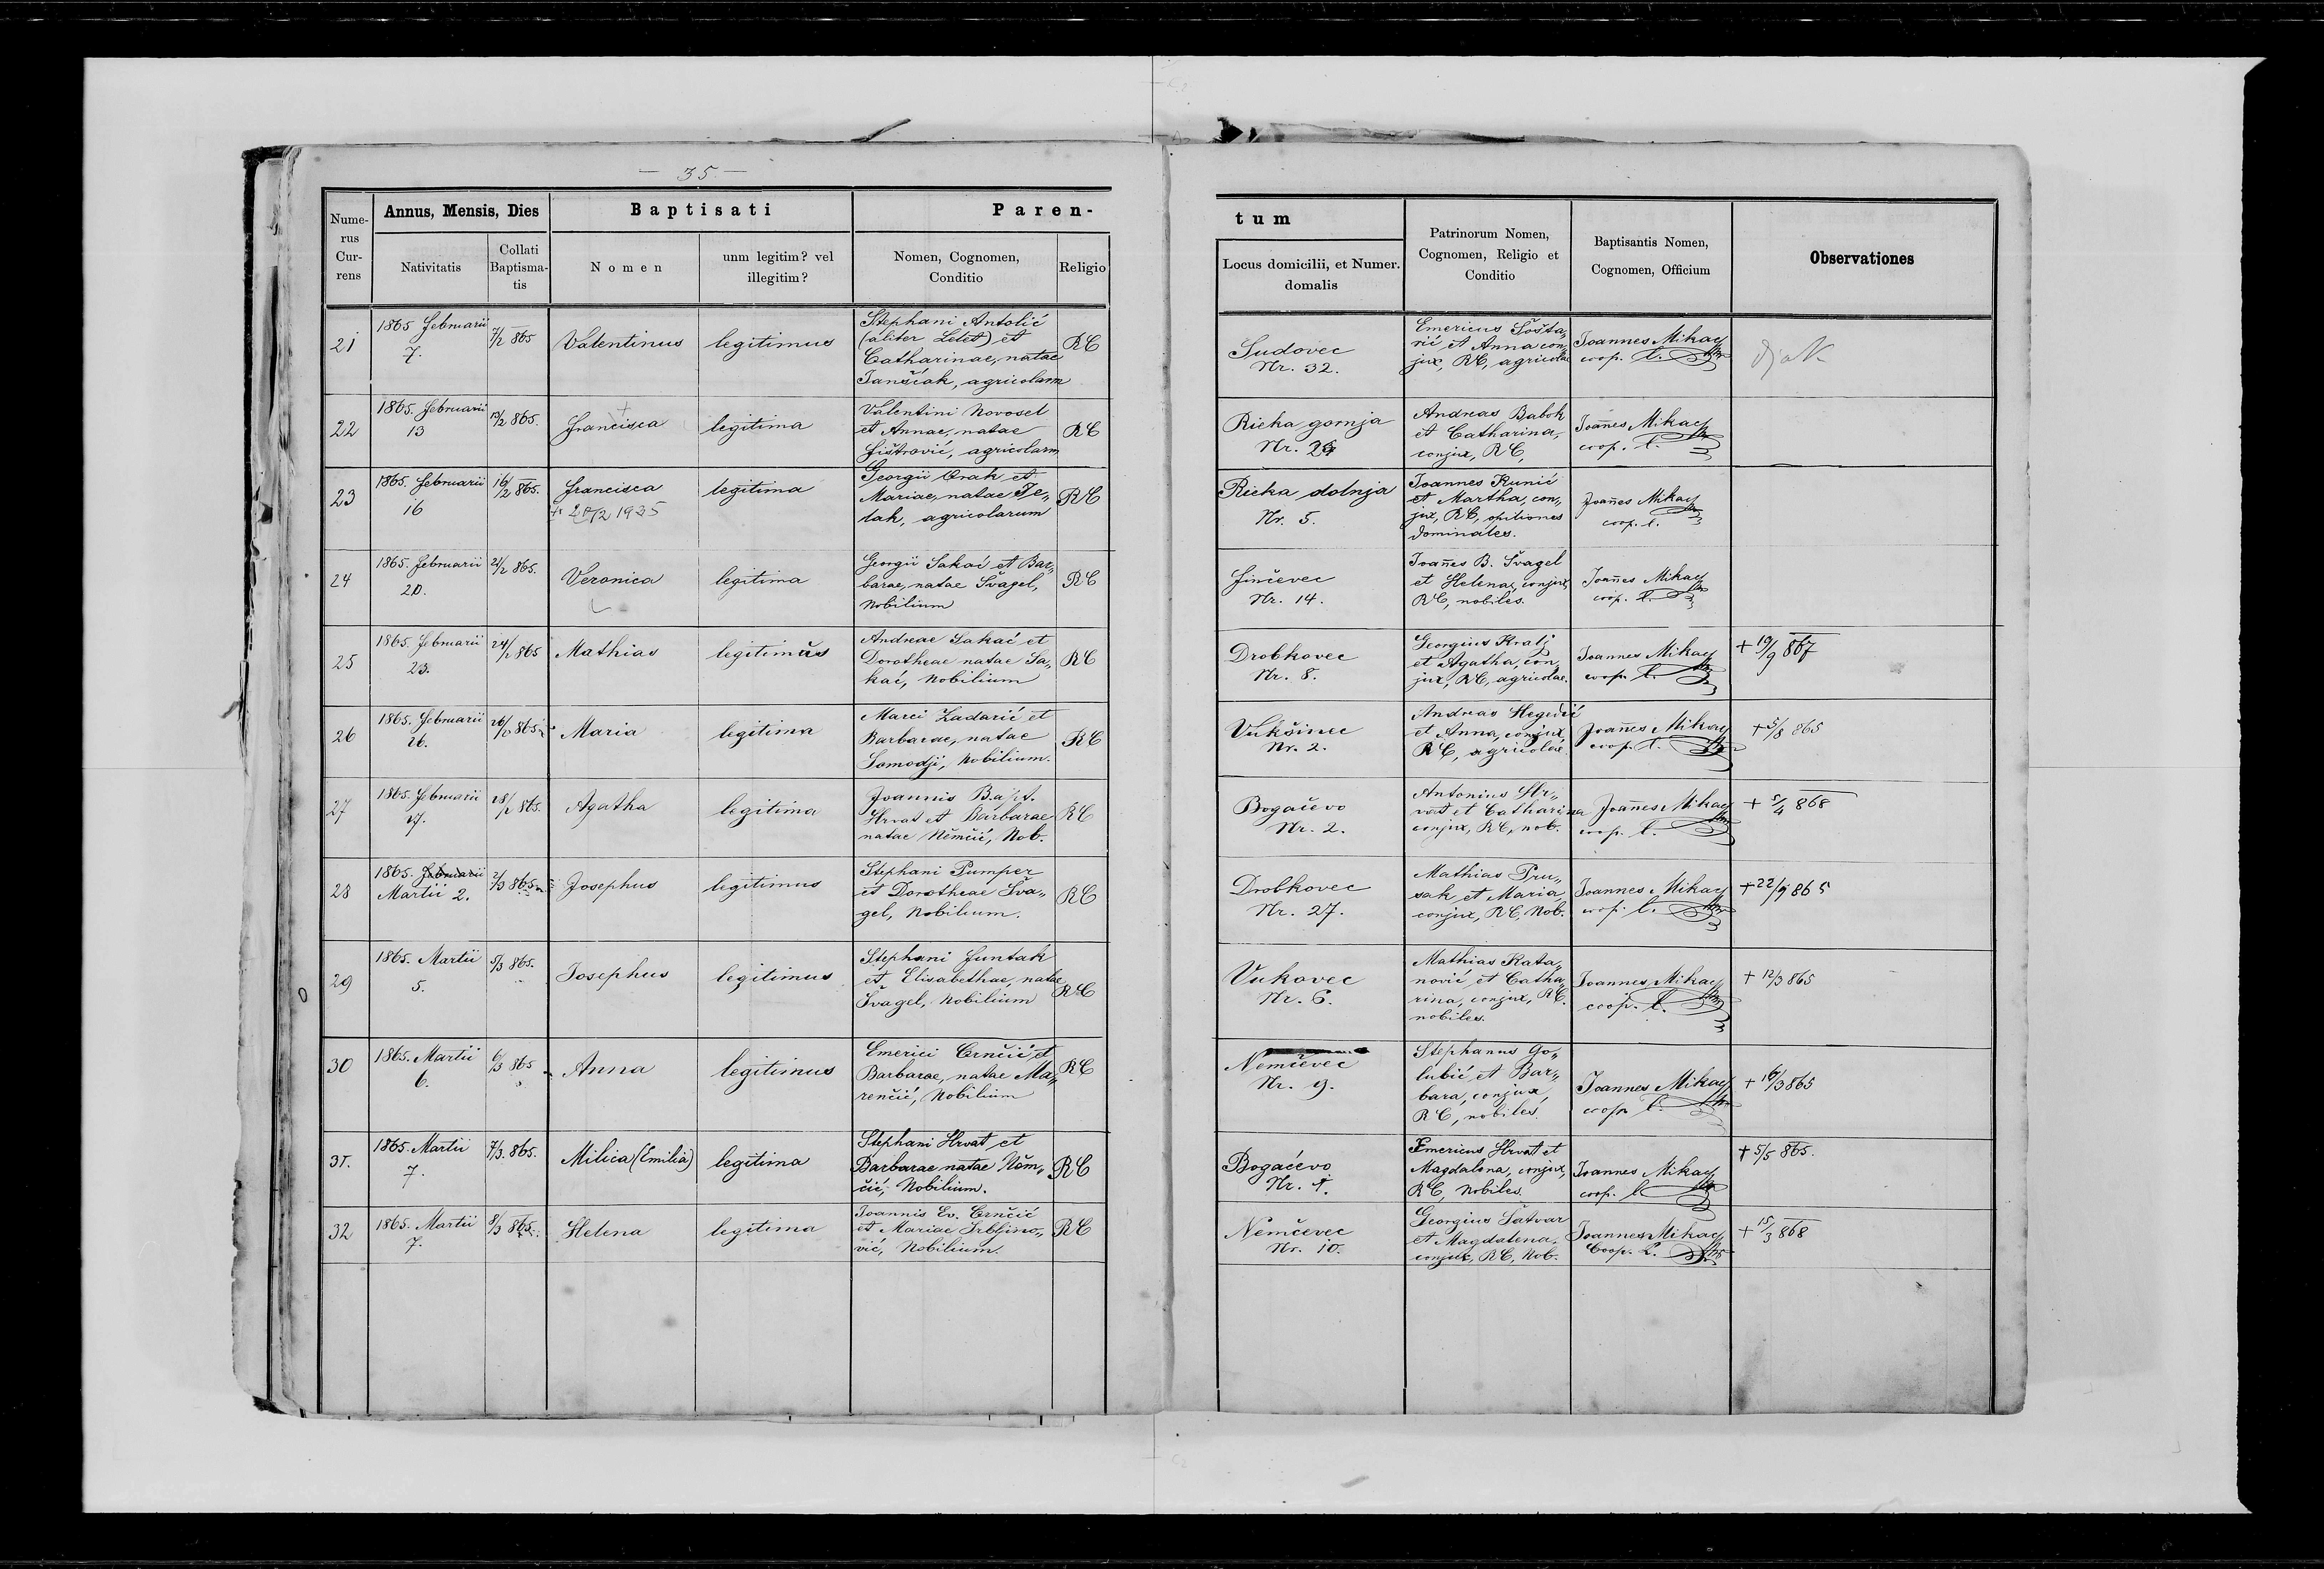 — 35. —
Nume-
rus
Cur-
rens
Annus, Mensis, Dies
Nativitatis
Collati
Baptisma-
tis
Baptisati
Nomen
unm legitim? vel
illegitim?
Paren-
Nomen, Cognomen,
Conditio
Religio
tum
Locus domicilii, et Numer.
domalis
Patrinorum Nomen,
Cognomen, Religio et
Conditio
Baptisantis Nomen,
Cognomen, Officium
Observationes
21
1865 Februarii
7.
7/2 865
Valentinus
legitimus
Stephani Antolić
(aliter Letet) et
Catharinae, natae
Janščak, agricolarm
RC
Sudovec
Nr. 32.
Emericus Šošta„
rić et Anna con„
jux, RC, agricolae
Joannes Mikac
coop. l.
Djak
22
1865. Februarii
13
13/2 865.
Francisca
legitima
Valentini Novosel
et Annae, natae
Fištrović, agricolarm
RC
Rieka gornja
Nr. 29
Andreas Babok
et Catharina,
conjux, RC,
Joan̄es Mikac
coop. l.
23
1865. Februarii
16
16/2 865.
Francisca
+ 20/12 1935
legitima
Georgii Crak et
Mariae, natae Je„
lak, agricolarum
RC
Rieka dolnja
Nr. 5.
Joannes Kunić
et Martha, con„
jux, RC, opiliones
dominales.
Joan̄es Mikac
coop. l.
24
1865. Februarii
20.
21/2 865.
Veronica
legitima
Georgii Sakač et Bar„
barae, natae Švagel,
Nobilium
RC
Finčevec
Nr. 14.
Joan̄es B. Švagel
et Helena, conjux,
RC, nobiles.
Joan̄es Mikac
coop. l.
25
1865. Februarii
23.
24/2 865
Mathias
legitimus
Andreae Sakač et
Dorotheae natae Sa„
kač, Nobilium
RC
Drobkovec
Nr. 8.
Georgius Kralj
et Agatha, con„
jux, RC, agricolae.
Joannes Mikac
coop. l.
+ 19/9 867
26
1865. Februarii
26.
26/2 865
Maria
legitima
Marci Zadarić et
Barbarae, natae
Somodji, Nobilium.
RC
Vukšinec
Nr. 2.
Andreas Hegedić
et Anna, conjux,
RC, agricolae.
Joan̄es Mikac
coop. l.
+ 5/8 865
27
1865. Februarii
27.
28/2 865.
Agatha
legitima
Joannis Bapt.
Hrvat et Barbarae
natae Němčić, Nob.
RC
Bogačevo
Nr. 2.
Antonius Hr„
vat et Catharina
conjux, RC, nob.
Joan̄es Mikac
coop. l.
+ 5/4 868
28
1865. Februarii
Martii 2.
2/3 865
Josephus
legitimus
Stephani Pumper
et Dorotheae Šva„
gel, Nobilium.
RC
Drobkovec
Nr. 27.
Mathias Pru„
sak et Maria
conjux, RC, Nob.
Joannes Mikac
coop. l.
+ 22/9 865
29
1865. Martii
5.
5/3 865.
Josephus
legitimus
Stephani Funtak
et Elisabethae, natae
Švagel, Nobilium
RC
Vukovec
Nr. 6.
Mathias Kata„
nović et Catha„
rina, conjux, RC.
nobiles.
Joannes Mikac
coop. l.
+ 12/3 865
30
1865. Martii
6.
6/3 865
Anna
legitimus
Emerici Crnčić et
Barbarae, natae Ma„
renčić, Nobilium
RC
Nemčevec
Nr. 9.
Stephanus Go„
lubić, et Bar„
bara, conjux,
RC, nobiles.
Joannes Mikac
coop. l.
+ 16/3 865
31.
1865. Martii
7.
7/3. 865.
Milica (Emilia)
legitima
Stephani Hrvat et
Barbarae natae Něm„
čić, Nobilium.
RC
Bogačevo
Nr. 1.
Emericus Hrvat et
Magdalena, conjux,
RC, Nobiles.
Joannes Mikac
coop. l.
+ 5/5 865.
32
1865. Martii
7.
8/3 865.
Helena
legitima
Joannis Ev. Crnčić
et Mariae Trbljino„
vić, Nobilium.
RC
Němčevec
Nr. 10.
Georgius Šatvar
et Magdalena,
conjux, RC, Nob.
Joannes Mikac
Coop. L.
+ 15/3 868